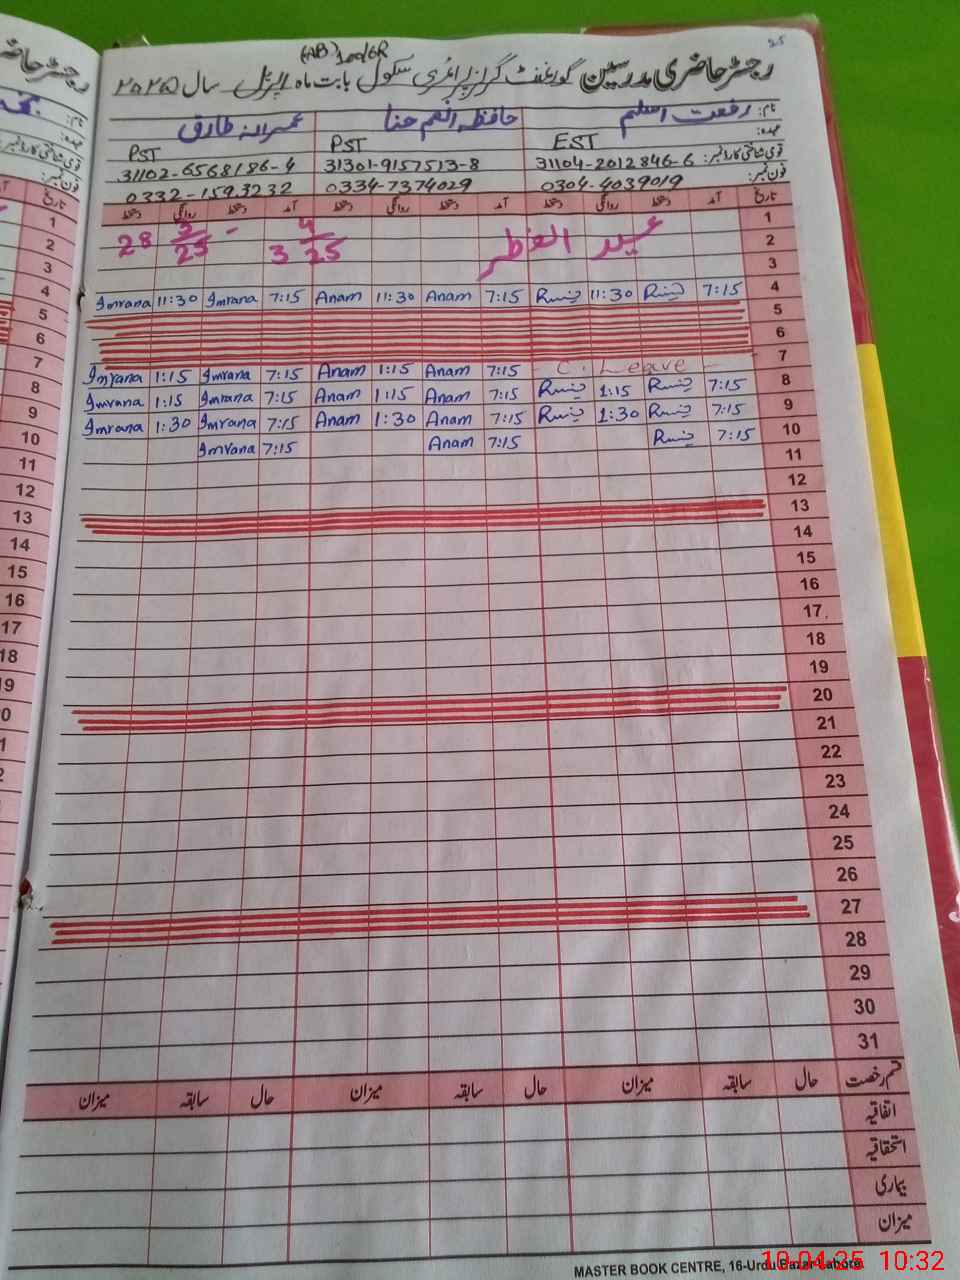 25
(AB) 1006R
رجسٹر حاضری مدرسین گورنمنٹ گرلز پرائمری سکول بابت ماہ اپریل سال ۲۰۲۵
نام: رفعت اسلم حافظہ انعم حنا عمرانہ طارق
عہدہ: EST PST PST
قومی شناختی کارڈ نمبر: 31104-2012846-6 31301-9157513-8 31102-6568186-4
فون نمبر: 0304-4039019 0334-7374029 0332-1593232
تاریخ آمد دستخط روانگی دستخط آمد دستخط روانگی دستخط آمد دستخط روانگی دستخط
1
2 عید الفطر 3 4/25 - 28 3/25
3
4 7:15 11:30 7:15 Anam 11:30 Anam 7:15 Imrana 11:30 Imrana
5
6
7 C. Leave 7:15 Anam 1:15 Anam 7:15 Imrana 1:15 Imrana
8 7:15 1:15 7:15 Anam 1:15 Anam 7:15 Imrana 1:15 Imrana
9 7:15 1:30 7:15 Anam 1:30 Anam 7:15 Imrana 1:30 Imrana
10 7:15 7:15 Anam 7:15 Imrana
11
12
13
14
15
16
17
18
19
20
21
22
23
24
25
26
27
28
29
30
31
قسم رخصت حال سابقہ میزان حال سابقہ میزان حال سابقہ میزان
اتفاقیہ
استحقاقیہ
بیماری
میزان
MASTER BOOK CENTRE, 16-Urdu Bazar Lahore
10.04.25 10:32